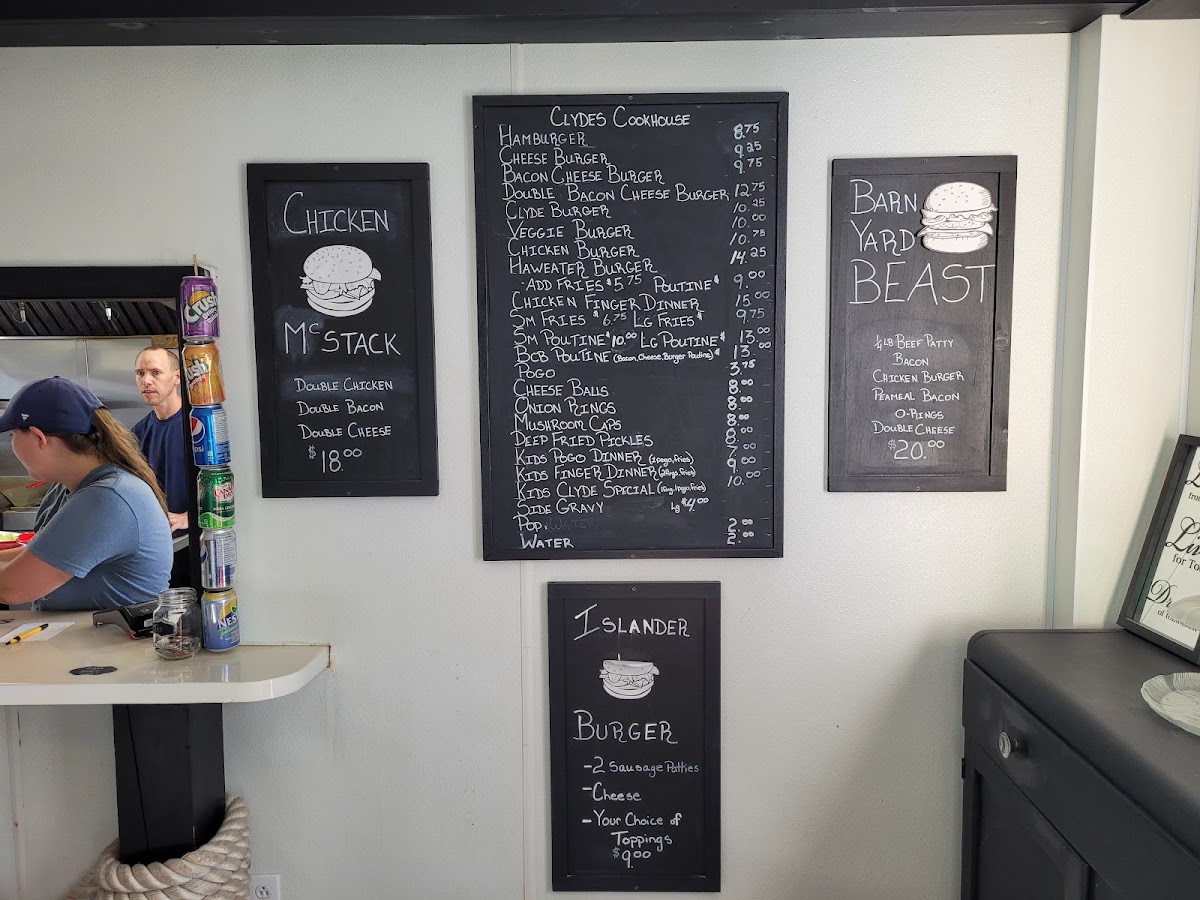 CHICKEN
McSTACK
DOUBLE CHICKEN
DOUBLE BACON
DOUBLE CHEESE
$18.00
CLYDES COOKHOUSE
HAMBURGER 8.75
CHEESE BURGER 9.25
BACON CHEESE BURGER 9.75
DOUBLE BACON CHEESE BURGER 12.75
CLYDE BURGER 10.25
VEGGIE BURGER 10.00
CHICKEN BURGER 10.75
HAWEATER BURGER 14.25
-ADD FRIES $5.75 POUTINE $ 9.00
CHICKEN FINGER DINNER 15.00
SM FRIES $6.75 LG FRIES $ 9.75
SM POUTINE $10.00 LG POUTINE $ 13.00
BCB POUTINE (Bacon, Cheese, Burger Poutine) $ 13.
POGO 3.75
CHEESE BALLS 8.00
ONION RINGS 8.00
MUSHROOM CAPS 8.00
DEEP FRIED PICKLES 8.00
KIDS POGO DINNER (1pogo, fries) 7.00
KIDS FINGER DINNER (2fings, fries) 9.00
KIDS CLYDE SPECIAL (1fing, 1pogo, fries) 10.00
SIDE GRAVY Lg $4.00
POP. WATER 2.00
WATER 2.00
BARN
YARD
BEAST
1/4 LB BEEF PATTY
BACON
CHICKEN BURGER
PEAMEAL BACON
O-RINGS
DOUBLE CHEESE
$20.00
ISLANDER
BURGER
-2 Sausage Patties
-Cheese
-Your Choice of
Toppings
$9.00
Crush
Crush
PEPSI
NES
for To